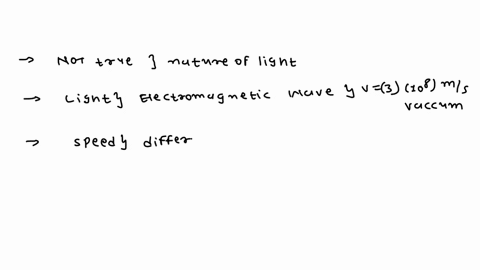 → Not true } nature of light
→ Light } Electromagnetic wave } v=(3)(10⁸) m/s
vaccum
→ speed } differ